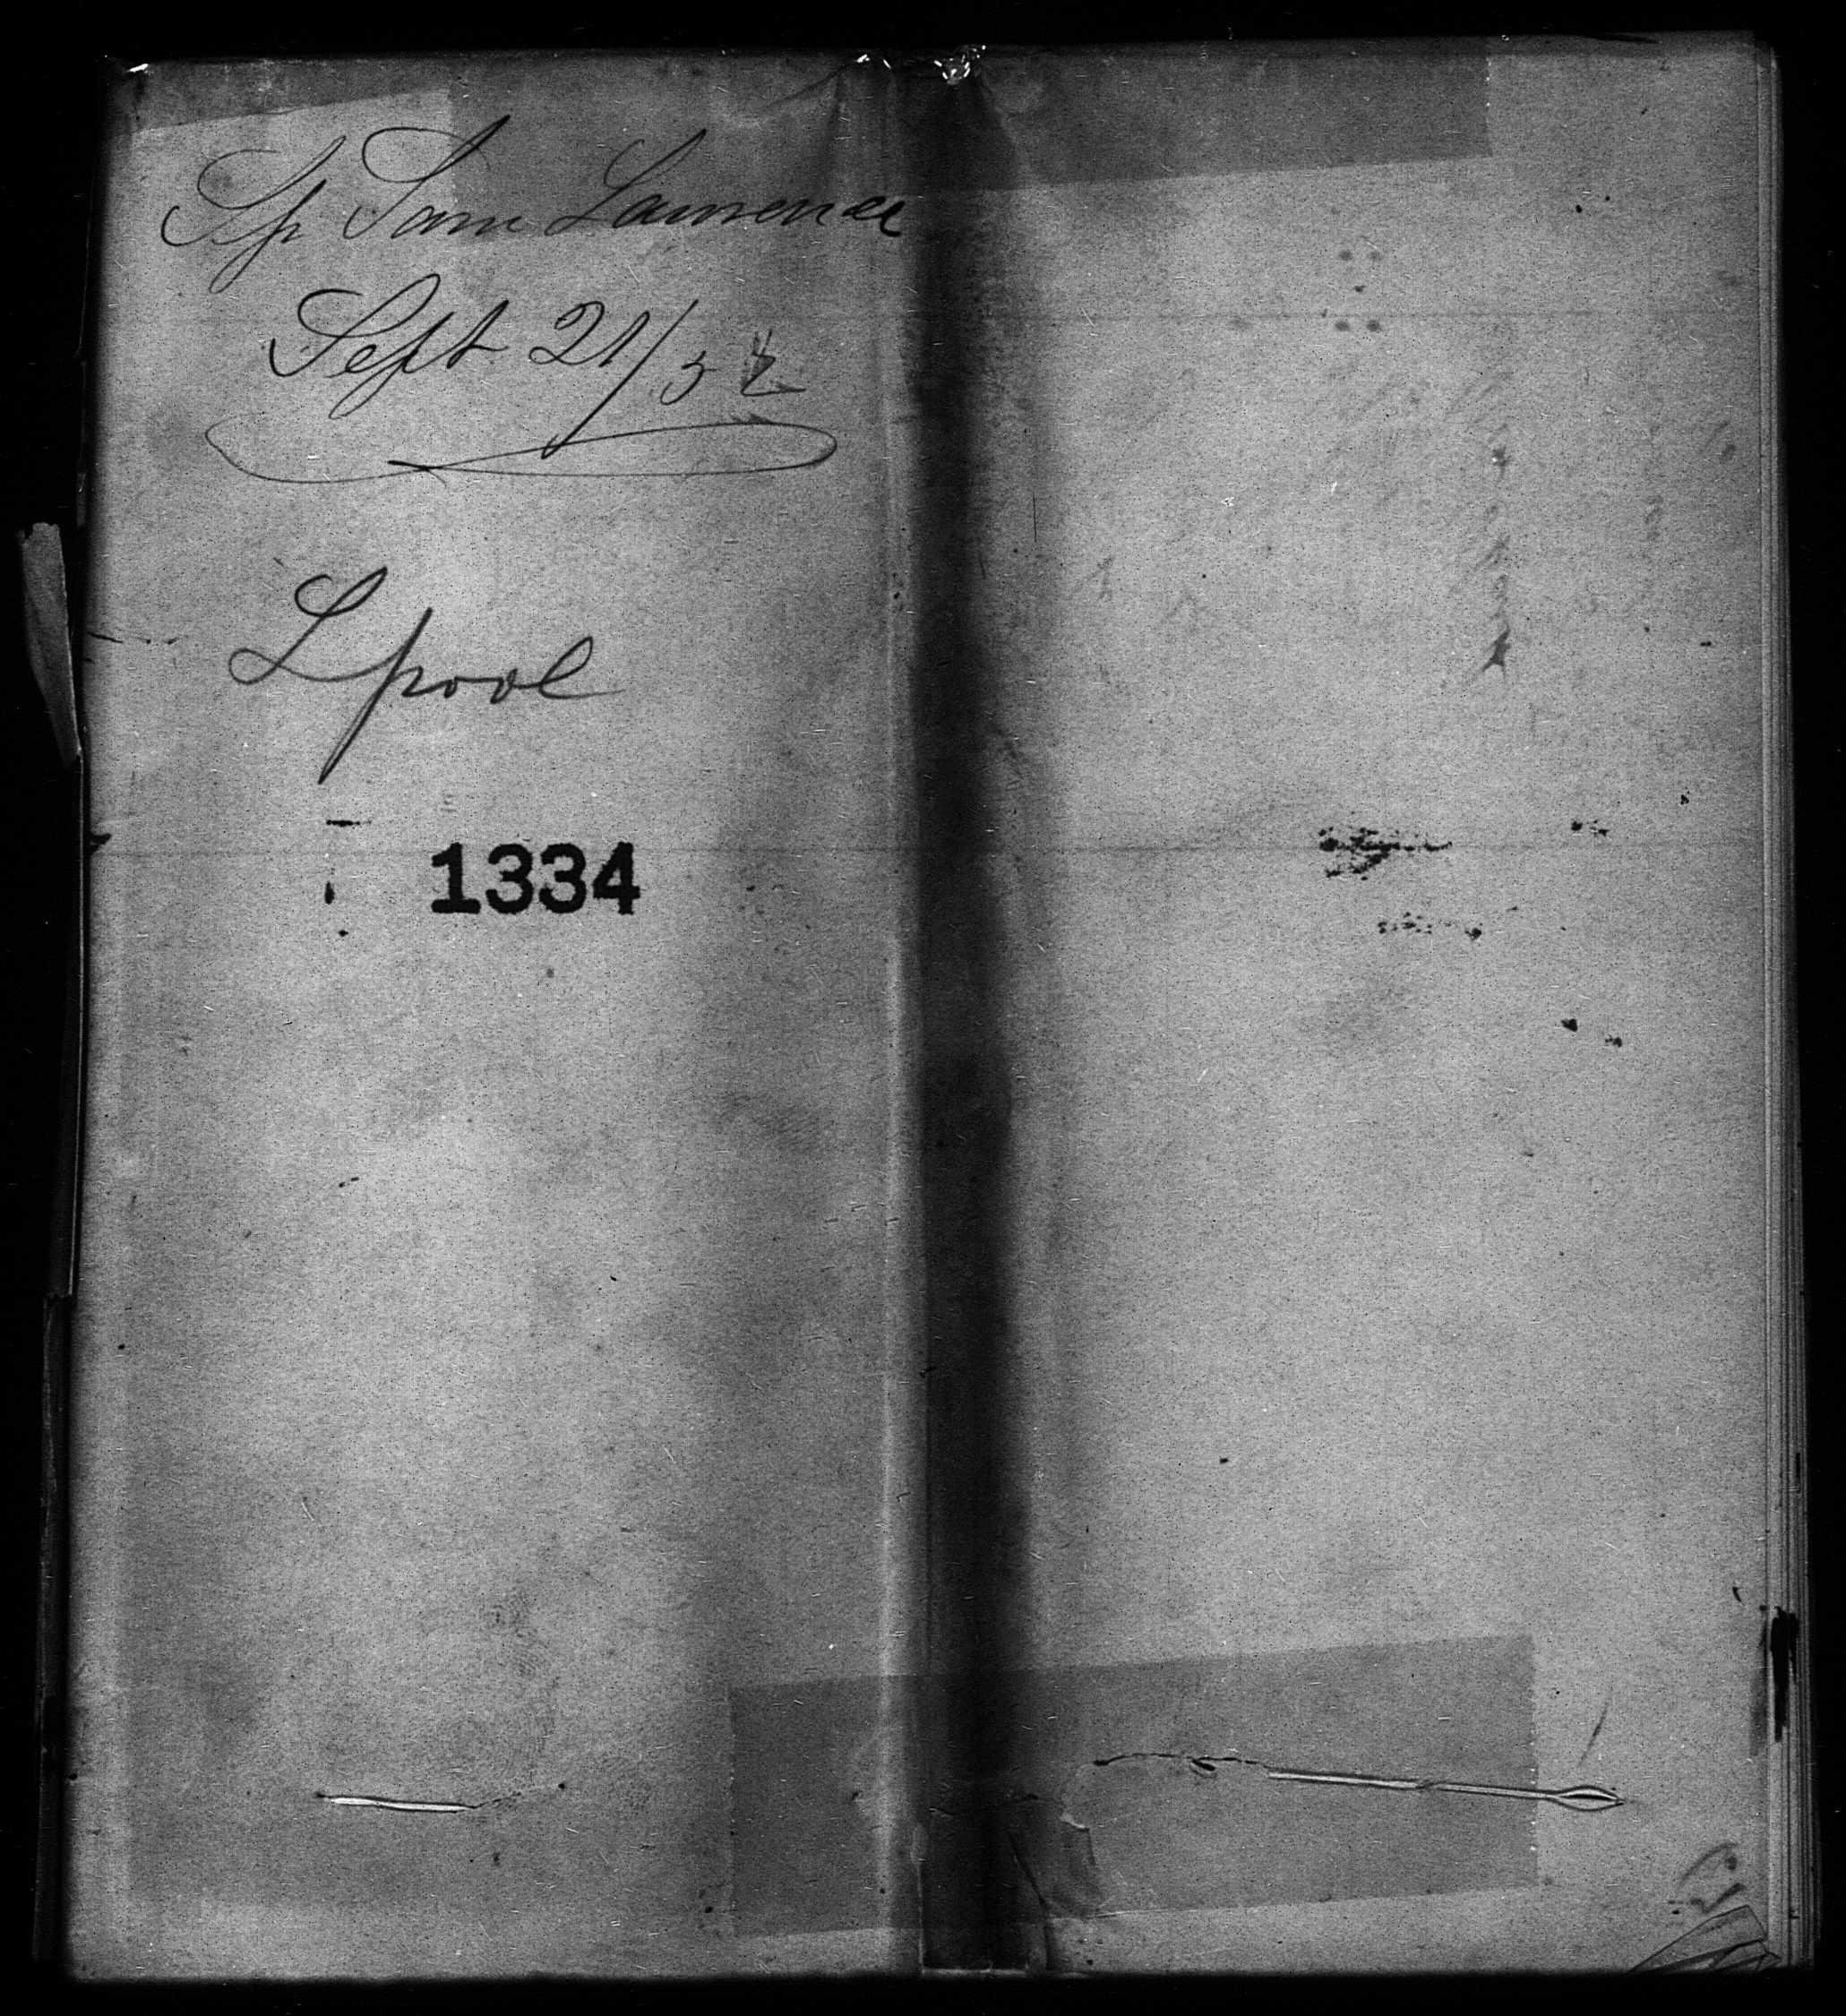 Shp Sam Lawrence
Sept 21/52
Lpool
1334